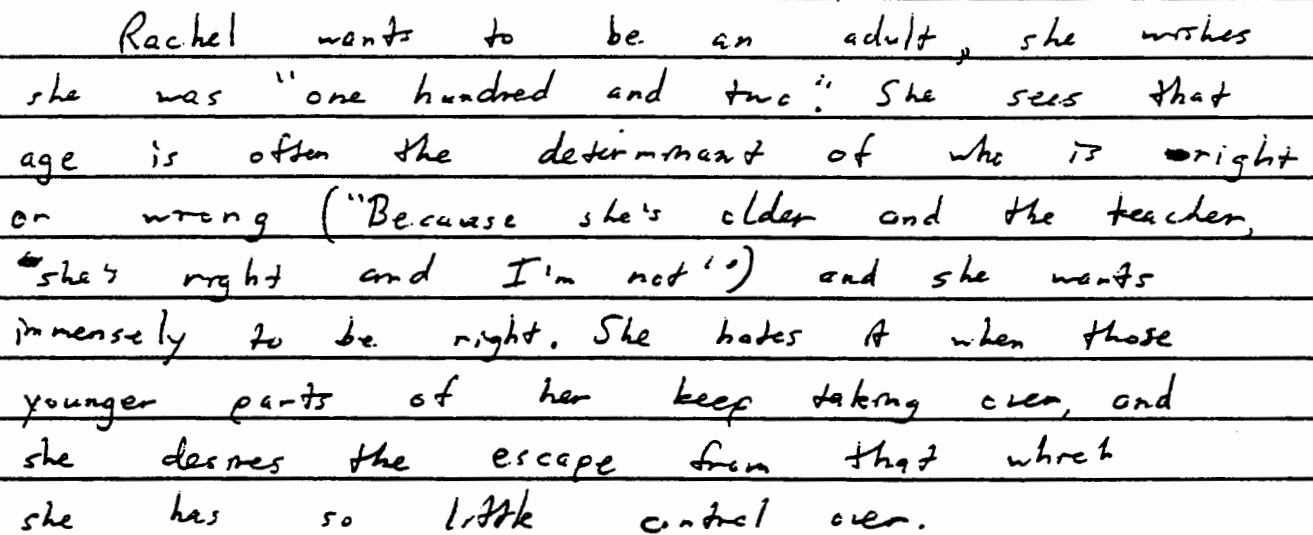 Rachel wants to be an adult, she wishes
she was "one hundred and two". She sees that
age is often the determinant of who is right
or wrong ("Because she's older and the teacher,
she's right and I'm not") and she wants
immensely to be right. She hates it when those
younger parts of her keep taking over, and
she desires the escape from that which
she has so little control over.